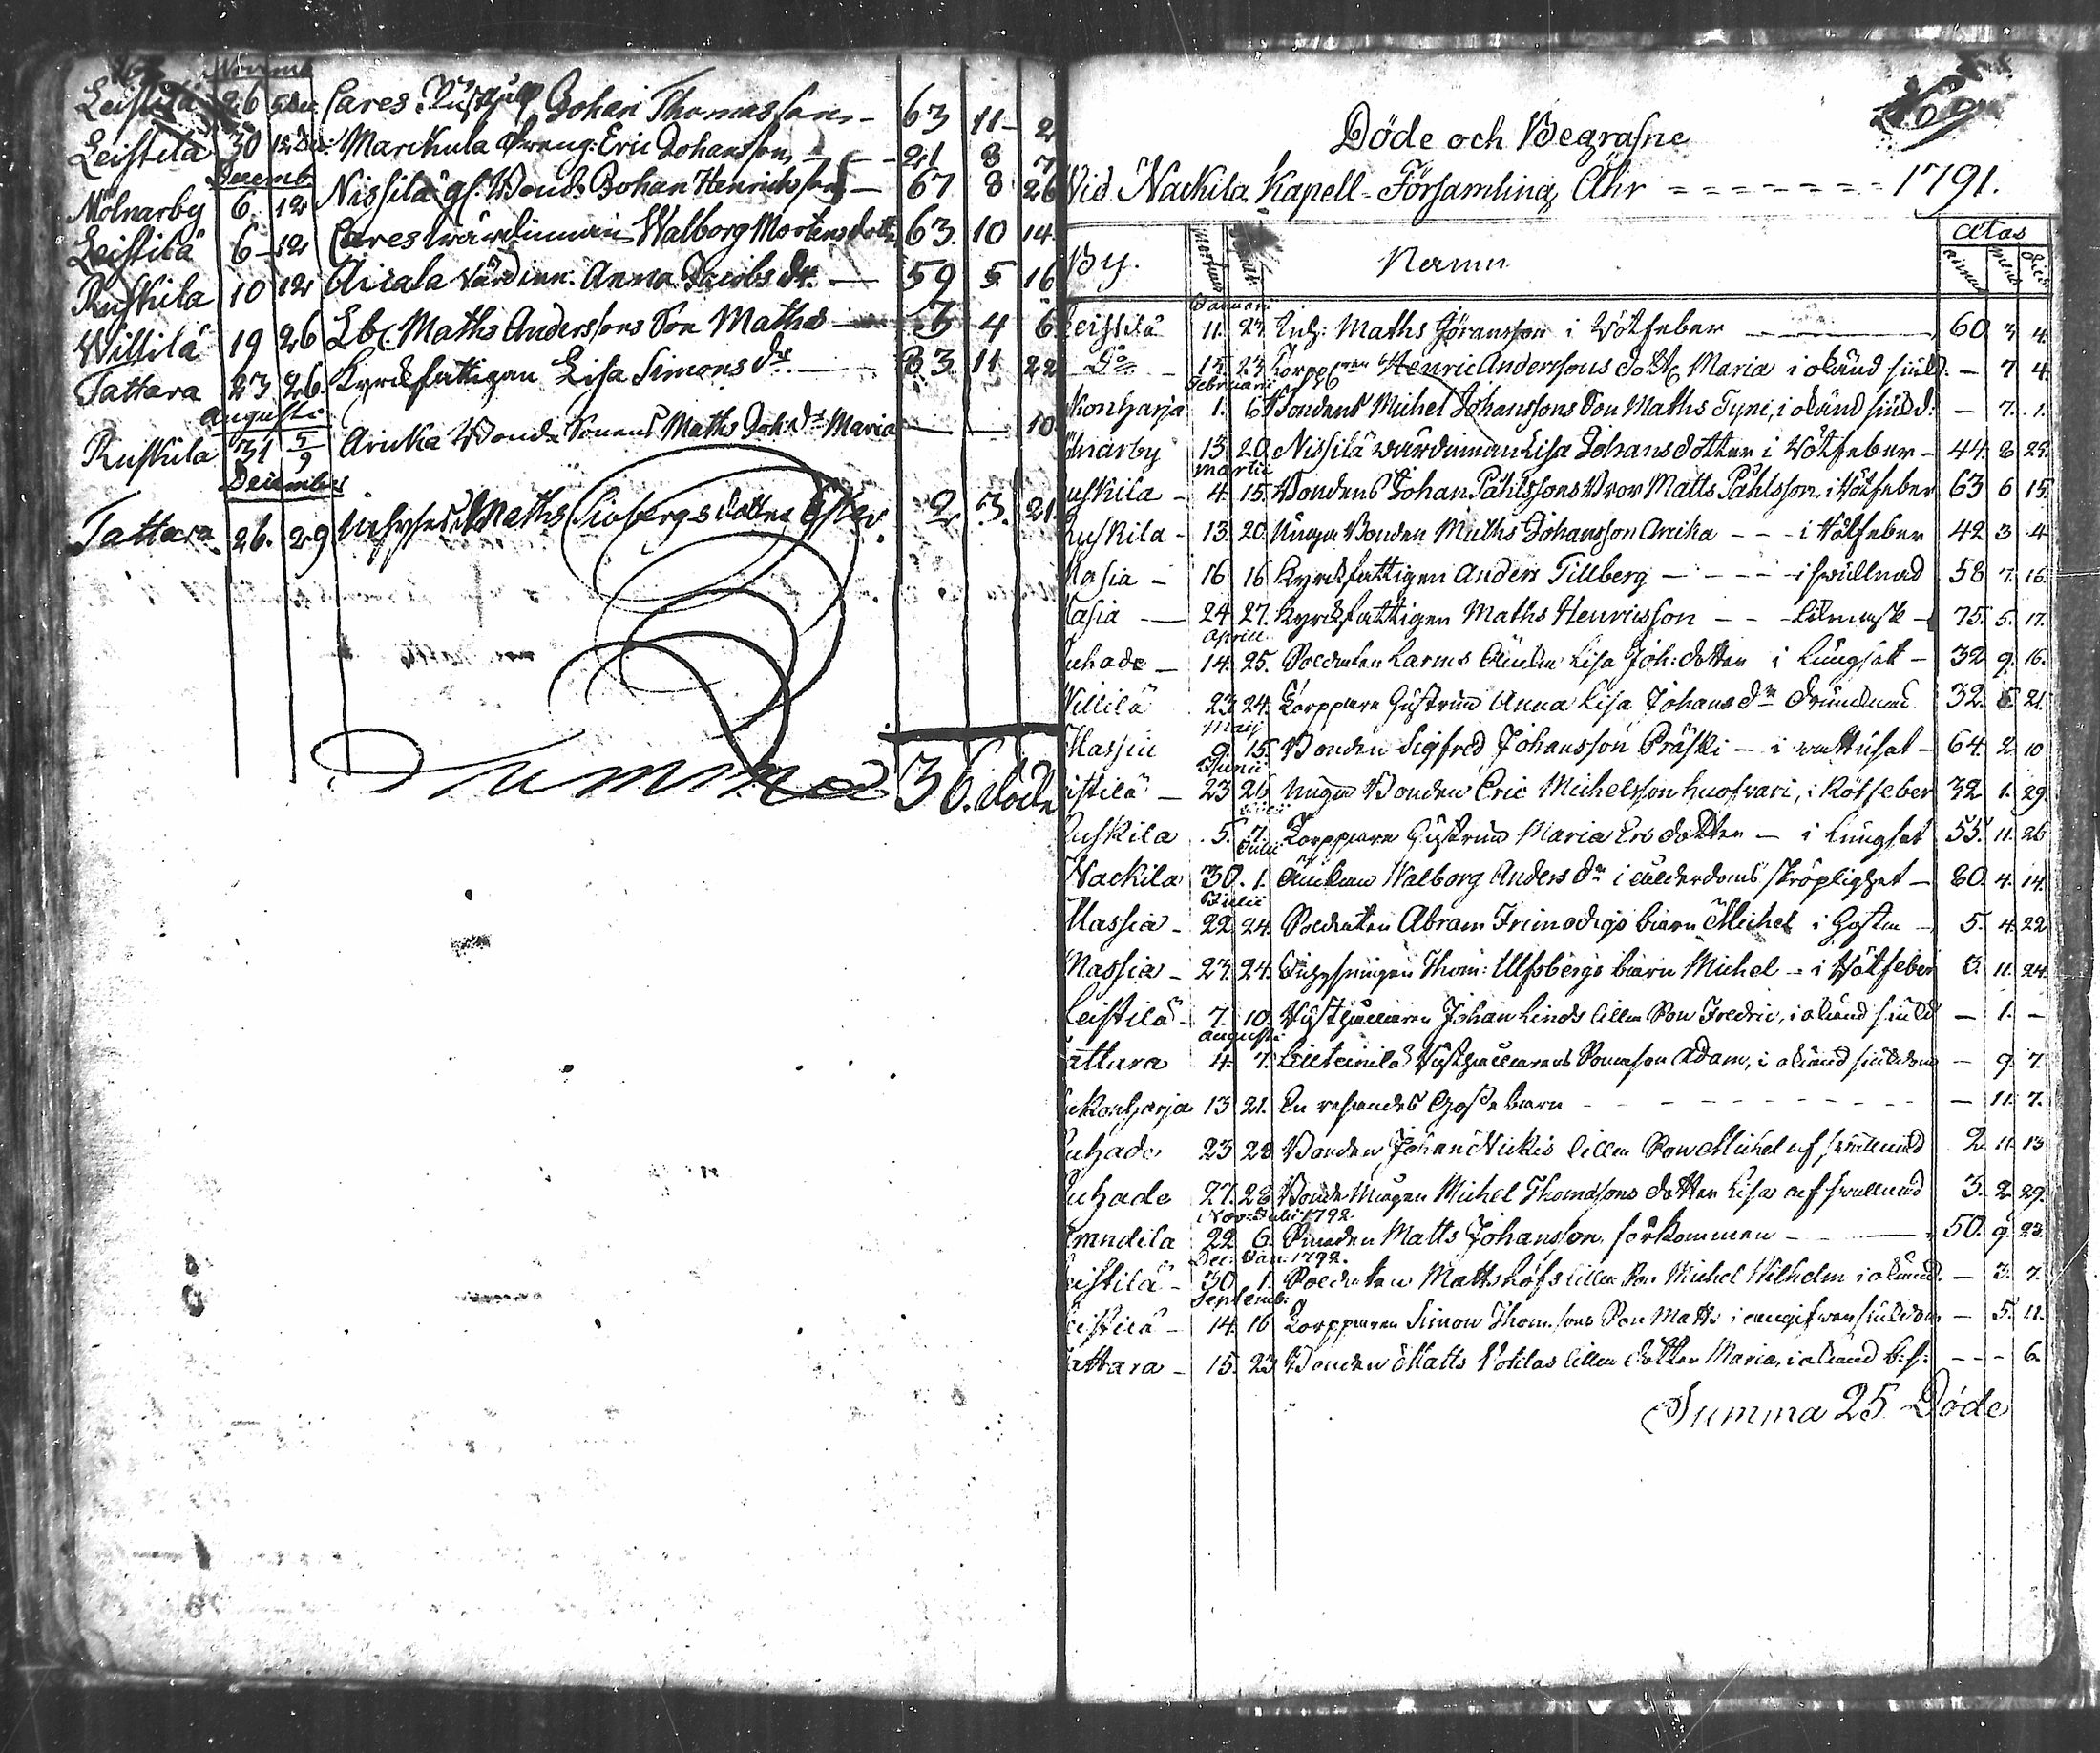 Novemb
Leistilä 26 5 Dec. Cares Johan Thomasson 63 11 2
Leistilä 30 12 Dec. Marckula Dreng: Eric Johansson 21 8 7
Decemb
Mölnarby 6. 12 Nissilä gl. Bond. Johan Henricksson 67 8 26
Leistilä 6 12 Cares wärdinnan Walborg Mortensdott. 63. 10 14.
Ruskila 10 12 Airala värdinn. Anna Jacobs dr. 59 5 16
Willilä 19 26 Lbl. Maths Anderssons Son Maths 5 4 6
Tattara 23 26. Kyrckfattigan Lisa Simons dr. 83 11 22
Augusti
Ruskila 31 5/9 Aricka Bonde Sonens Maths Joh. dr Maria — — 10
December
Tattara 26. 29 Maths Siobergs dotter Ester. 2. 3. 21.
Summa 36. döde
Döde och Begrafne
Vid Nackila Kapell-Församling Åhr - - - - - - - 1791.
By. Mortuus Namn Ætas
annus mens dies
Januari
Leistilä 11. 23. Enk: Maths Jöransson i Rötfeber 60 3 4.
Do 15. 23 Torpparen Henric Anderssons dott. Maria i okänd siukd. — 7 4.
Februari
konharja 1. 6 Bondens Michel Johanssons Son Maths Tyni, i okänd siukd: — 7. 1.
ölnarby 15 20. Nissilä wärdinnan Lisa Johansdotter i Rötfeber — 44. 8 29.
Martii
uskila — 4. 15. Bondens Johan Påhlssons Bror Matts Påhlsson i Rötfeber 63 6 15.
Ruskila - 13. 20. Unga Bonden Maths Johansson Aricka — - - i Rötfeber 42 3 4
Masia — 16 16 Kyrckfattigen Anders Tillberg — - - - i swullnad 58 7. 16.
Masia — 24 27. Kyrckfattigen Maths Henricsson — - - 75. 5. 17.
Aprill.
uhade — 14. 25. Soldaten Larms Änka Lisa Joh: dotter i Lungsot — 32 9. 16.
Willilä 23 24. Torppare Hustrun Anna Lisa Johans dr 32. 21.
Maij
Massia 9 15. Bonden Sigfred Johansson Präski — i wattusot — 64. 2 10
Junii
istilä — 23 26 Unga Bonden Eric Michelsson Huofvari, i Rötfeber 32 1. 29.
Julii
uskila 5. 7. Torppare Hustrun Maria Ersdotter — i Lungsot 55. 11. 26
Julii
Nackila 30. 1. Änkan Walborg Anders dr i ålderdoms skröplighet — 80. 4. 14.
Julii
Massia — 22 24. Soldaten Abram Frimodigs barn Michel i Hosta — 5. 4. 22
Massia — 23. 24. Inhysingen Thom: Ulfsbergs barn Michel — i Rötfeber 8. 11. 24.
Leistilä — 7. 10. Rusthållaren Johan Linds lilla Son Fredric, i okänd siukd — 1. —
Augusti
attara 4. 7. Rusthållarens Sonason Adam, i okänd siukdom — 9. 7.
ukonharja 13 21. En resandes Gosse barn - - - - - - - — 11. 7.
uhade 23 28 Bonden Johan Nickis lilla Son Michel af swullnad 2 11. 13
uhade 27. 28 Bonde Mågen Michel Thomassons dotter Lisa af swullnad 3. 2 29.
Nov: Julii 1792.
randila 22 6. Matts Johansson, förkommen — 50. 9. 23.
Dec: Jan: 1792.
eistilä — 30. 1. Soldaten Matts Löfs lilla Son Michel Wilhelm i okänd — 3. 7.
Septemb:
eistilä — 14. 16 Torpparen Simon Thomsons Son Matts i oangifwen siukdom — 5. 11.
attara — 15. 23 Bonden Matts lilla dotter Maria, i okänd b:s: - - - 6.
Summa 25 Döde